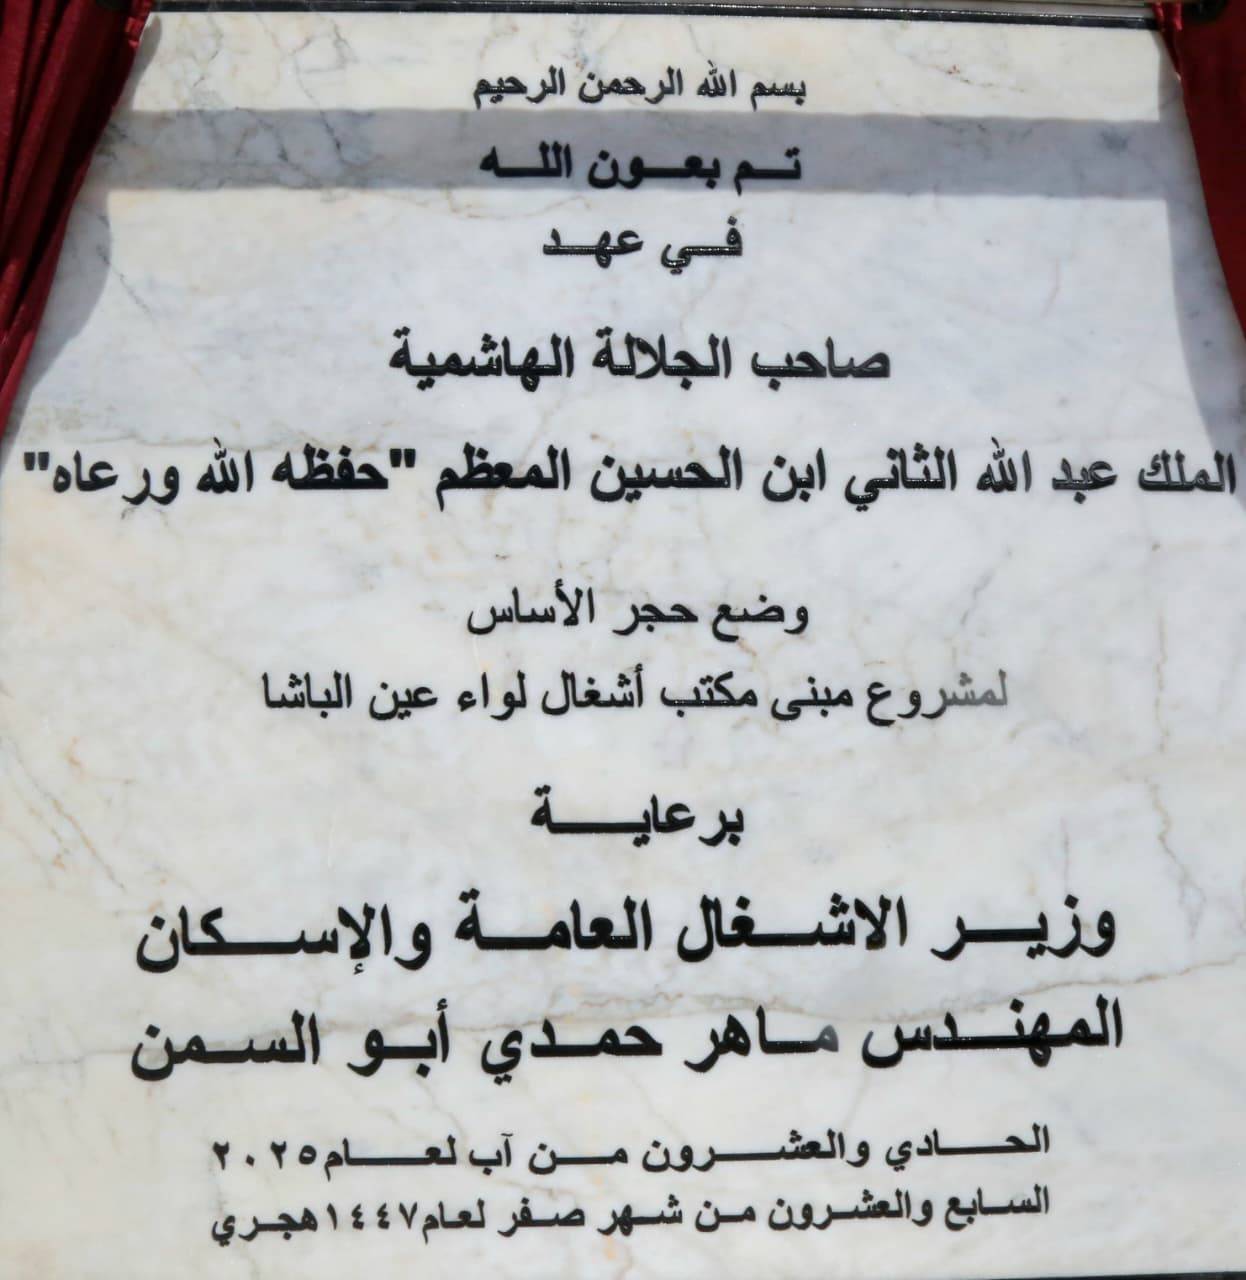 بسم الله الرحمن الرحيم
تم بعون الله
في عهد
صاحب الجلالة الهاشمية
الملك عبد الله الثاني ابن الحسين المعظم "حفظه الله ورعاه"
وضع حجر الأساس
لمشروع مبنى مكتب أشغال لواء عين الباشا
برعاية
وزير الاشغال العامة والإسكان
المهندس ماهر حمدي أبو السمن
الحادي والعشرون من آب لعام ٢٠٢٥
السابع والعشرون من شهر صفر لعام ١٤٤٧ هجري